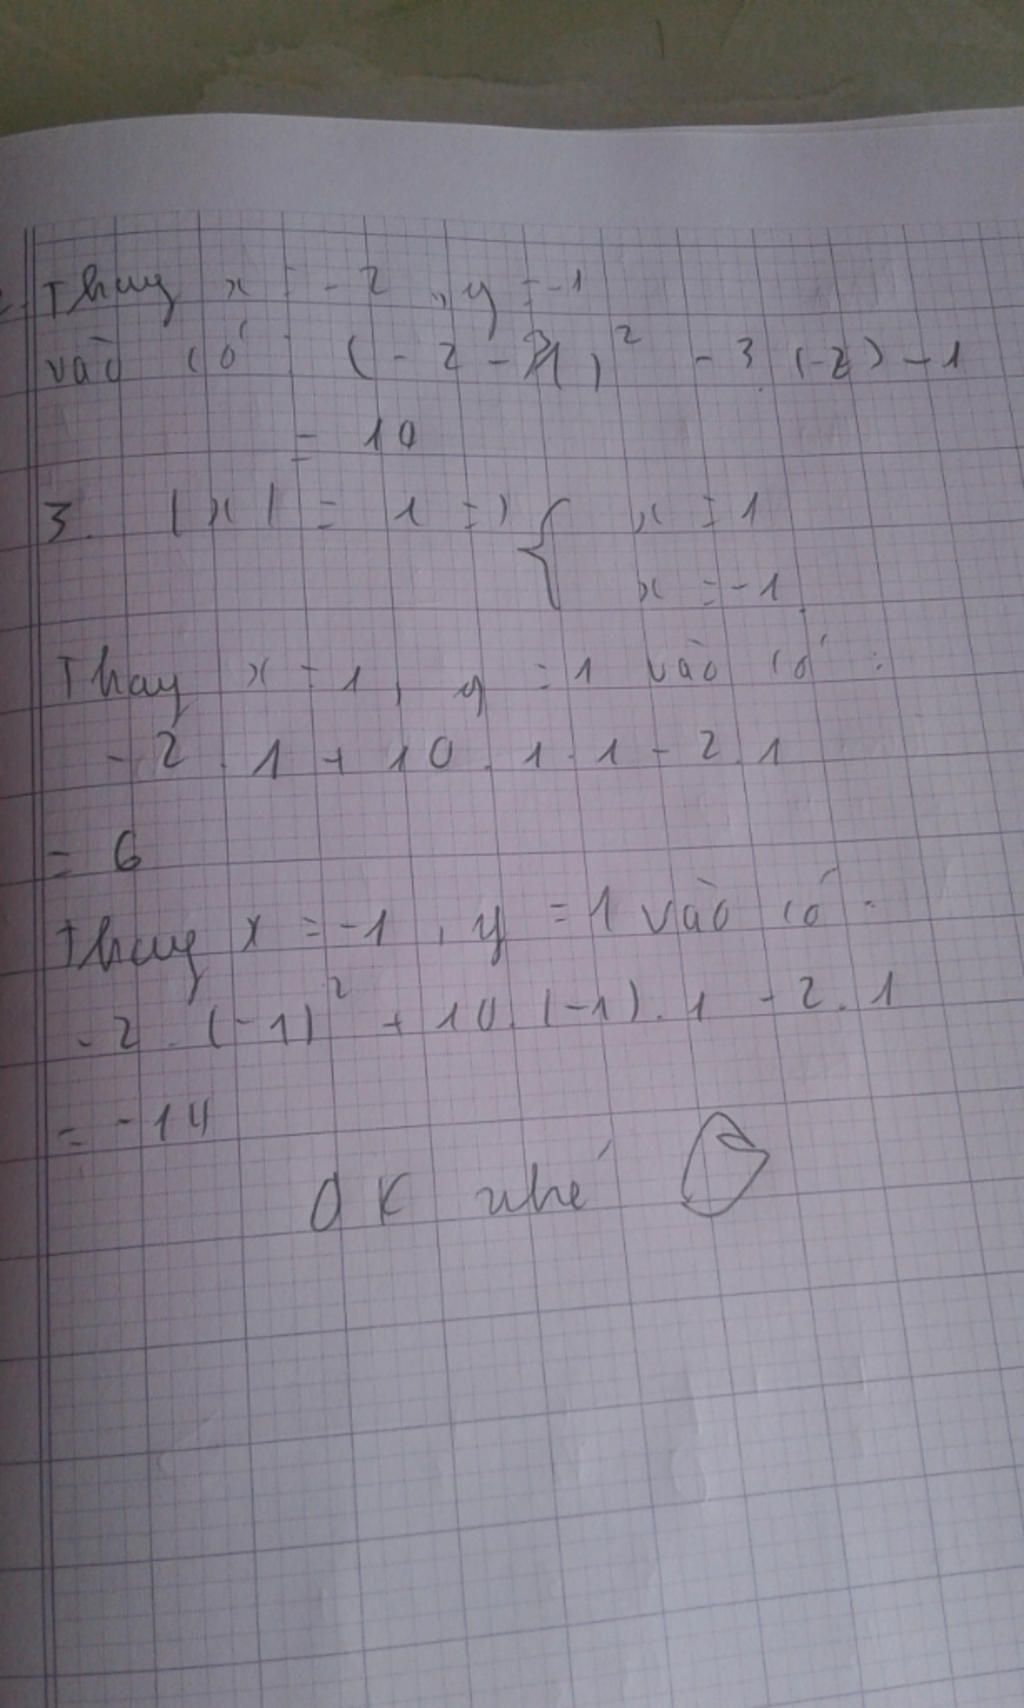 Thay x = -2, y = -1
vào có (-2-1)² - 3.(-2) - 1
= 10
3. |x| = 1 => { x = 1
x = -1
Thay x = 1, y = 1 vào có :
-2.1 + 10.1.1 - 2.1
= 6
Thay x = -1, y = 1 vào có :
-2.(-1)² + 10.(-1).1 - 2.1
= -14
OK nhé